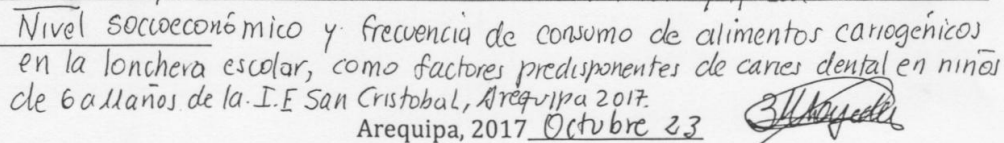 Nivel socioeconómico y frecuencia de consumo de alimentos cariogénicos
en la lonchera escolar, como factores predisponentes de caries dental en niños
de 6 a 11 años de la I.E San Cristobal, Arequipa 2017.
Arequipa, 2017 Octubre 23